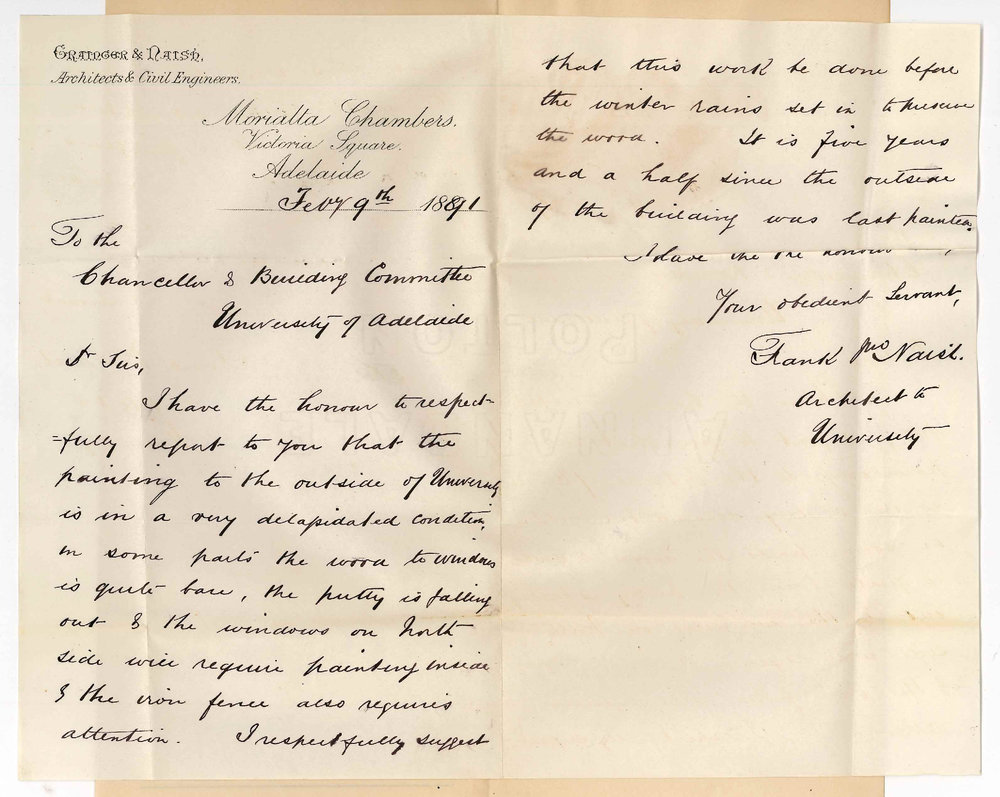 Grainger & Naish,
Architects & Civil Engineers.
Morialta Chambers.
Victoria Square.
Adelaide
Feby 9th 1891
To the
Chancellor & Building Committee
University of Adelaide
Dr Sirs,
I have the honour to respect-
=fully report to you that the
painting to the outside of University
is in a very delapidated condition,
in some parts the wood to windows
is quite bare, the putty is falling
out & the windows on North
side will require painting inside
& the iron fence also requires
attention. I respectfully suggest
that this work be done before
the winter rains set in to preserve
the wood. It is five years
and a half since the outside
of the building was last painted.
I have the honour
Your obedient Servant,
Frank Jno Naish.
Architect to
University